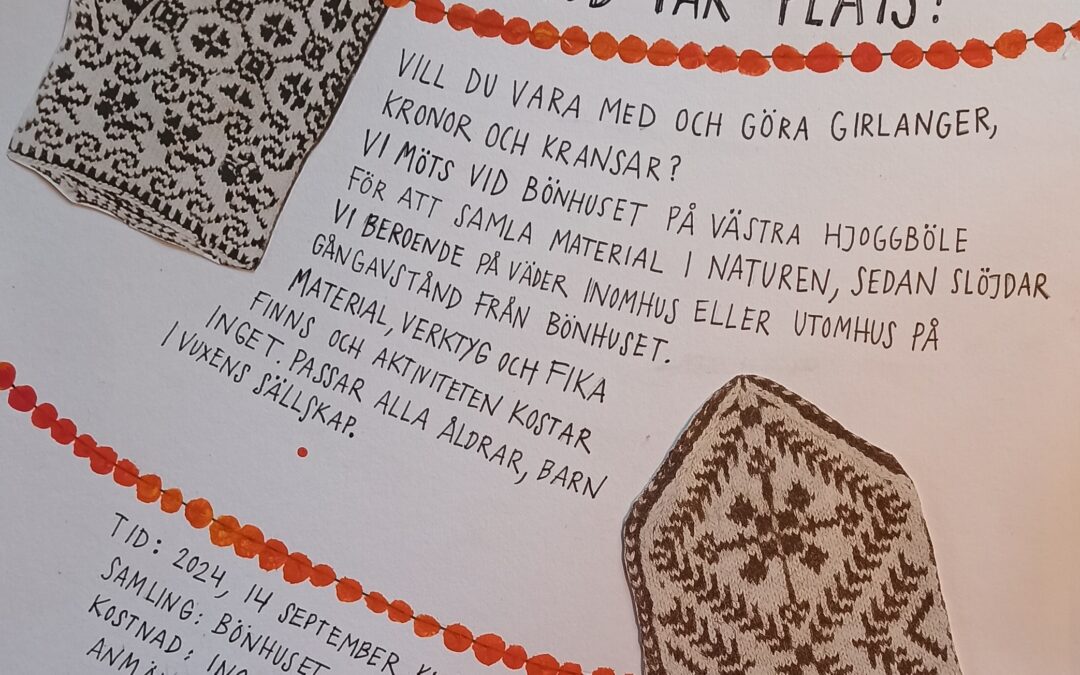 TAR PLATS!
VILL DU VARA MED OCH GÖRA GIRLANGER,
KRONOR OCH KRANSAR?
VI MÖTS VID BÖNHUSET PÅ VÄSTRA HJOGGBÖLE
FÖR ATT SAMLA MATERIAL I NATUREN, SEDAN SLÖJDAR
VI BEROENDE PÅ VÄDER INOMHUS ELLER UTOMHUS PÅ
GÅNGAVSTÅND FRÅN BÖNHUSET.
MATERIAL, VERKTYG OCH FIKA
FINNS OCH AKTIVITETEN KOSTAR
INGET. PASSAR ALLA ÅLDRAR, BARN
I VUXENS SÄLLSKAP.
TID: 2024, 14 SEPTEMBER
SAMLING: BÖNHUSET
KOSTNAD: